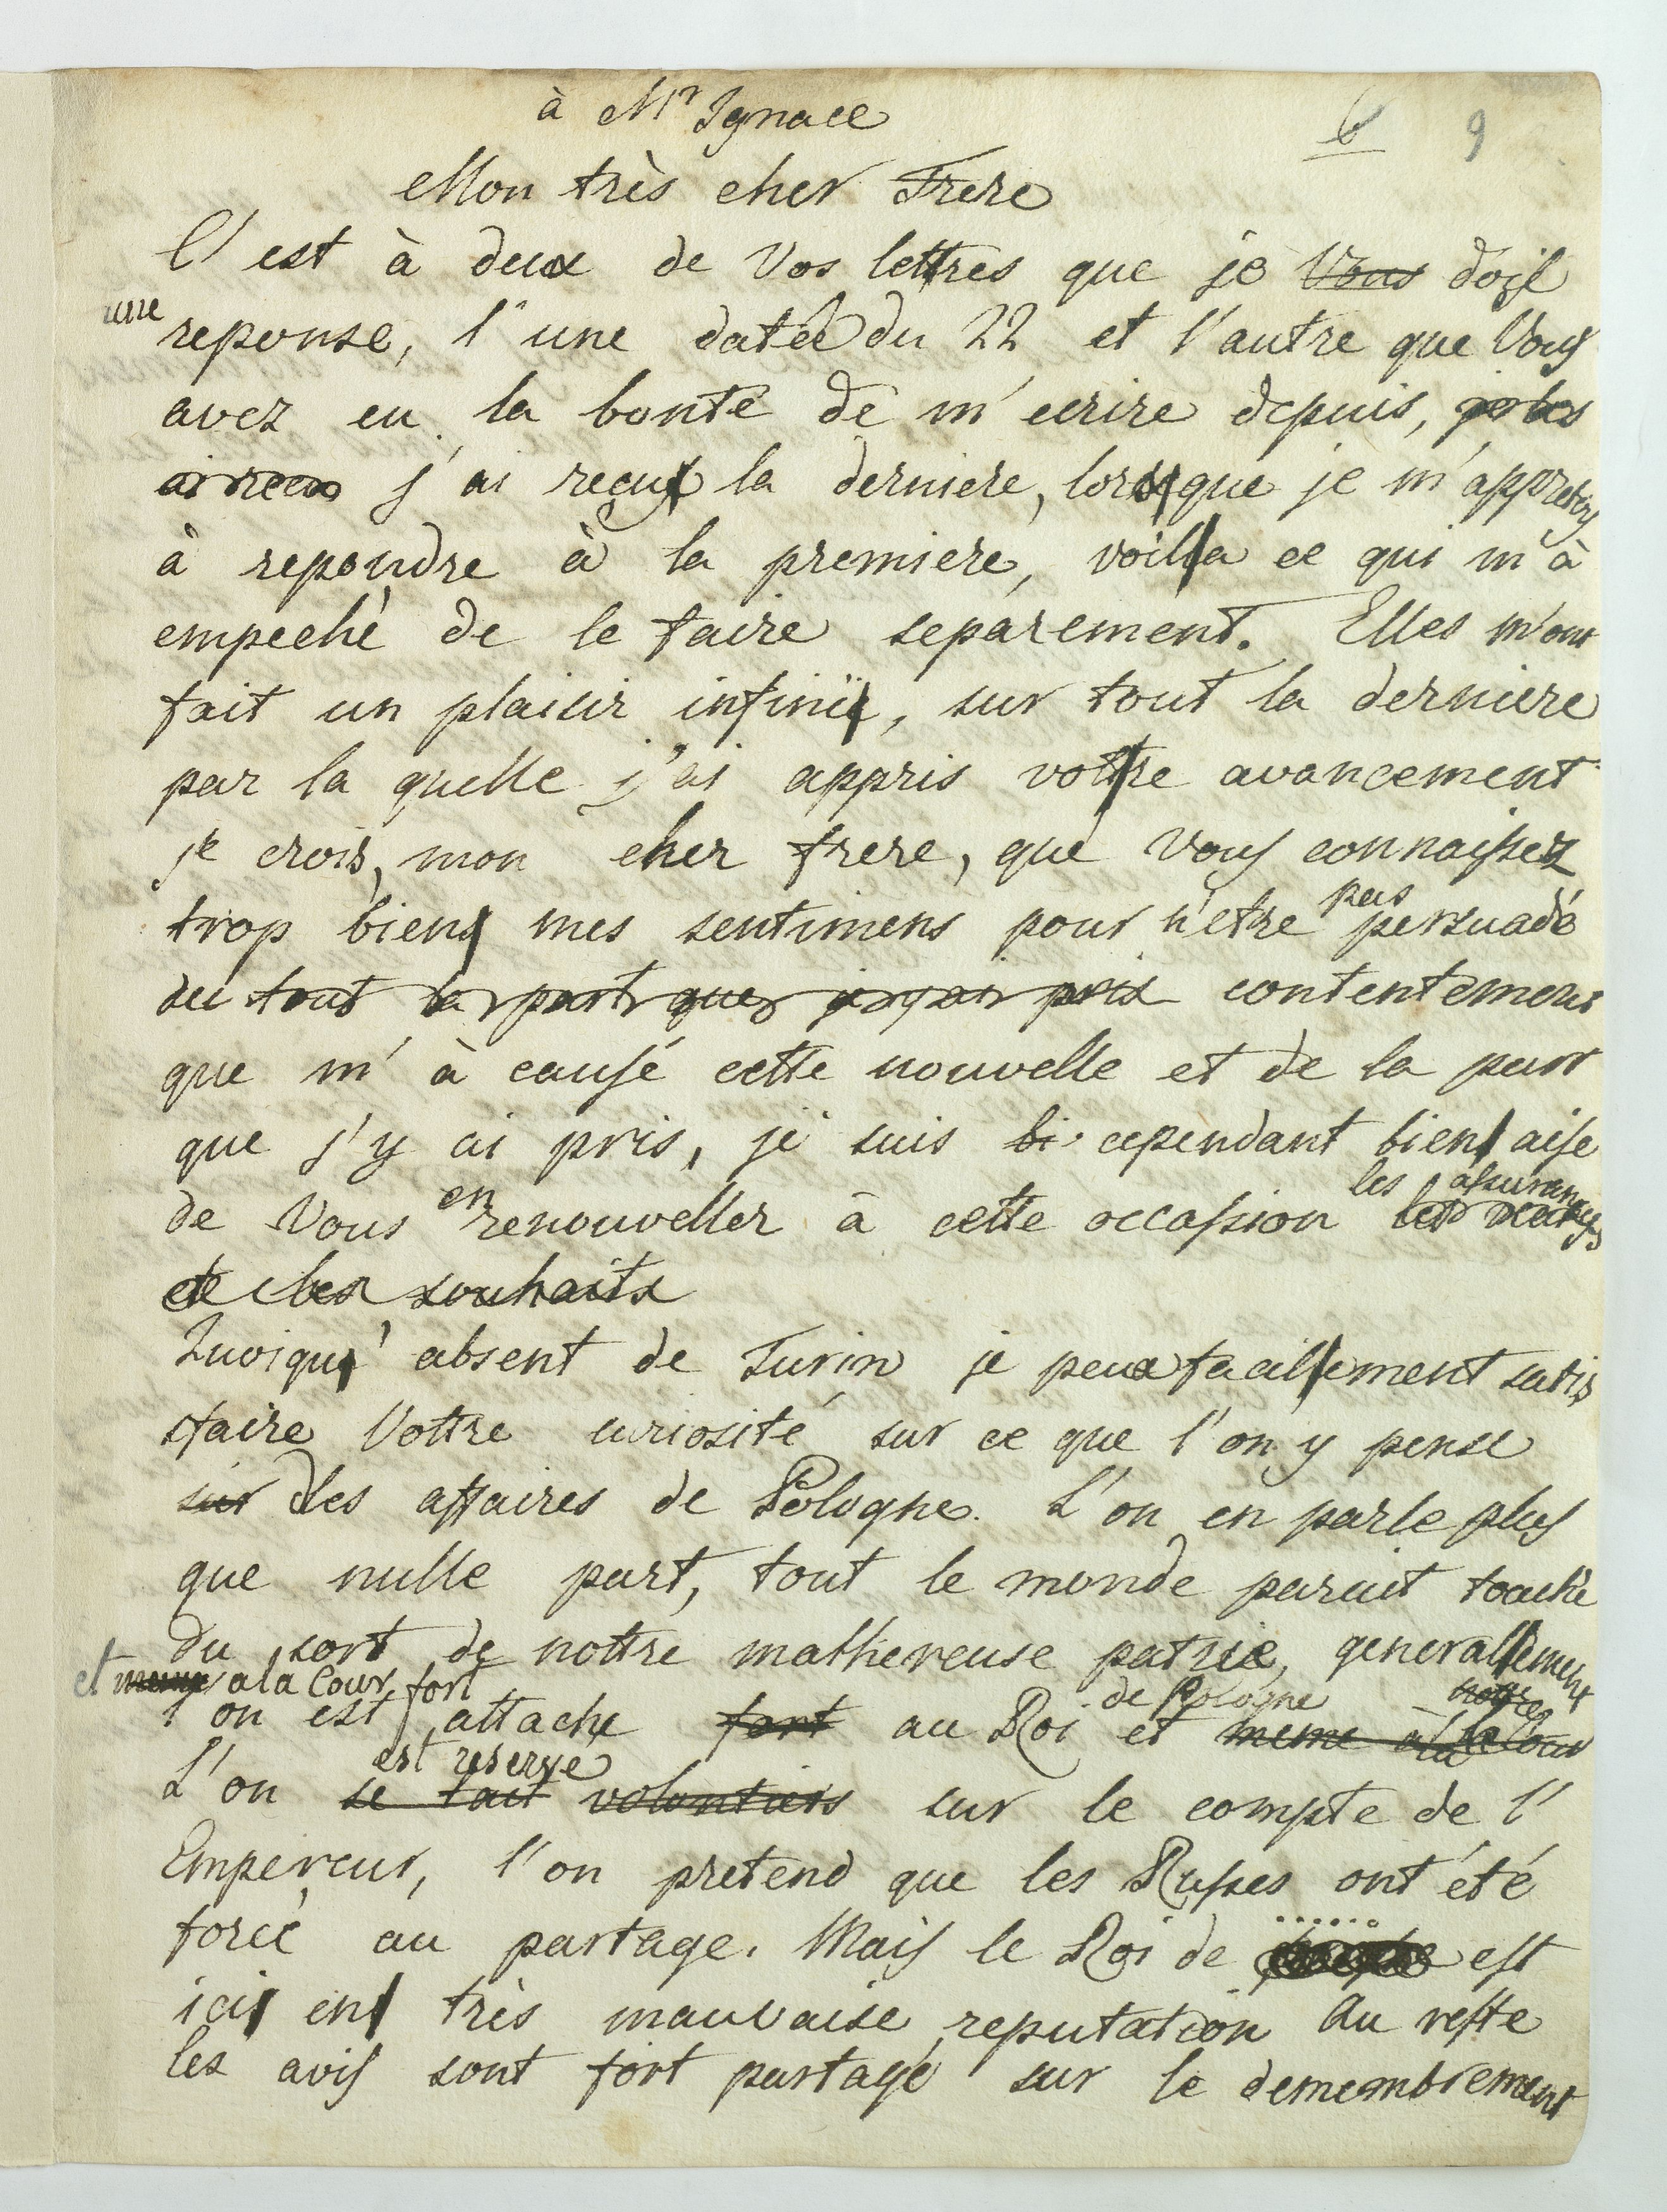 à Mr Ignace
6 9
Mon très cher Frere
C'est à deux de Vos lettres que je Vous dois
une reponse, l'une datée du 22 et l'autre que Vous
avez eu la bonté de m'ecrire depuis,
j'ai reçu la derniere, lorsque je m'appretois
à repondre à la premiere, voila ce qui m'à
empeché de le faire separement. Elles m'ont
fait un plaisir infini, sur tout la derniere
par la quelle j'ai appris votre avancement
je crois, mon cher frere, que Vous connaissez
trop bien mes sentimens pour n'etre pas persuadé
du tout la part que j'y ai pris contentement
que m'à causé cette nouvelle et de la part
que j'y ai pris, je suis bi cependant bien aise
de Vous en renouveller à cette occassion les assurances
et les souhaits
Quoiqu' absent de Turin je peux facilement satis
faire Vottre curiosité sur ce que l'on y pense
sur des affaires de Pologne. L'on en parle plus
que nulle part, tout le monde parait touché
du sort de nottre malhereuse patrie, generalement
et meme a la Cour fort de Pologne notre
l'on est attaché fort au Roi et meme à la Cour
est reservé
L'on se tait volontiers sur le compte de l'
Empereur, l'on pretend que les Russes ont été
forcé au partage. Mais le Roi de ...... est
ici en très mauvaise reputation au reste
les avis sont fort partagé sur le demembrement